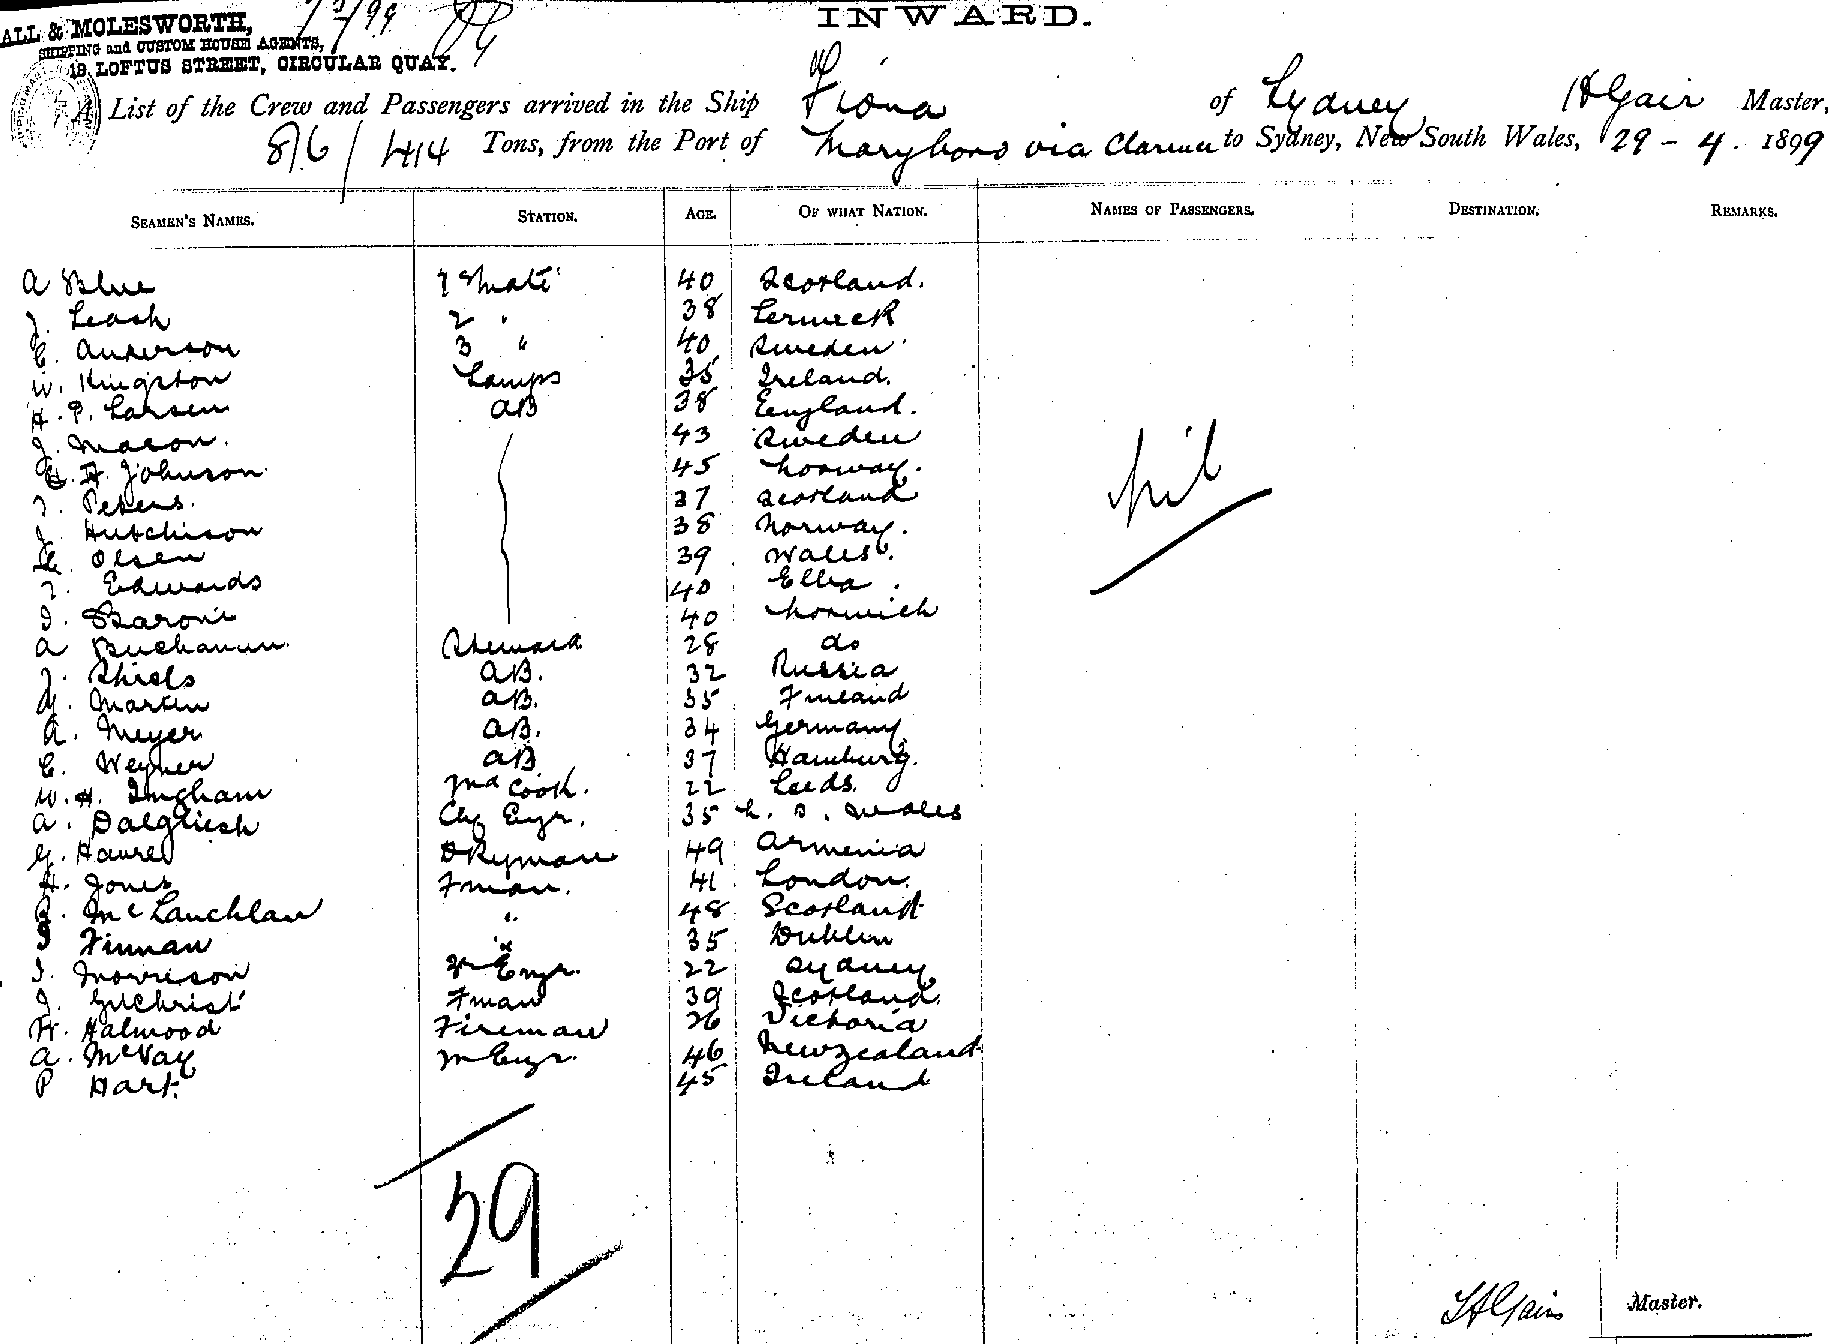 INWARD.
ALL & MOLESWORTH,
SHIPPING and CUSTOM HOUSE AGENTS,
18, LOFTUS STREET, CIRCULAR QUAY.
A List of the Crew and Passengers arrived in the Ship Fiona of Sydney H Gair Master,
876 / 1414 Tons, from the Port of Maryboro via Clarence to Sydney, New South Wales, 29 - 4. 1899
SEAMEN'S NAMES. STATION. AGE. OF WHAT NATION. NAMES OF PASSENGERS. DESTINATION. REMARKS.
A Blue 1st Mate 40 Scotland.
J. Leask 2 " 38 Lerwick
C. Anderson 3 " 40 Sweden
W. Kingston Lamps 35 Ireland.
H. P. Larsen AB 38 Eengland.
J. Mason. 43 Sweden
H. Johnson 45 Norway.
J. Peters. 37 Scotland
J. Hutchison 38 Norway.
Olsen 39 Wales.
J. Edwards 40 Elba.
J. Baroni 40 Norwich
A Buchanan. Steward 28 do
J. Shiels AB. 32 Russia
Martin AB. 35 Finland
A. Meyer AB. 34 Germany
C. Weyner AB 37 Hamburg.
W. H. Ingham 2nd Cook. 22 Leeds.
A. Dalgliesh Chf Engr. 35 N. S. Wales
G. Dkyman 49 Armenia
H. Jones Fman. 41 London.
R. McLauchlan " 48 Scotland
Finnan " 35 Dublin
J. Morrison 2n Engr. 22 Sydney
J. Gilchrist Fman 39 Scotland.
W. Halwood Fireman 26 Victoria
A. McVay Engr. 46 Newzealand
P Hart. 45 Ireland
nil
29
H Gair Master.